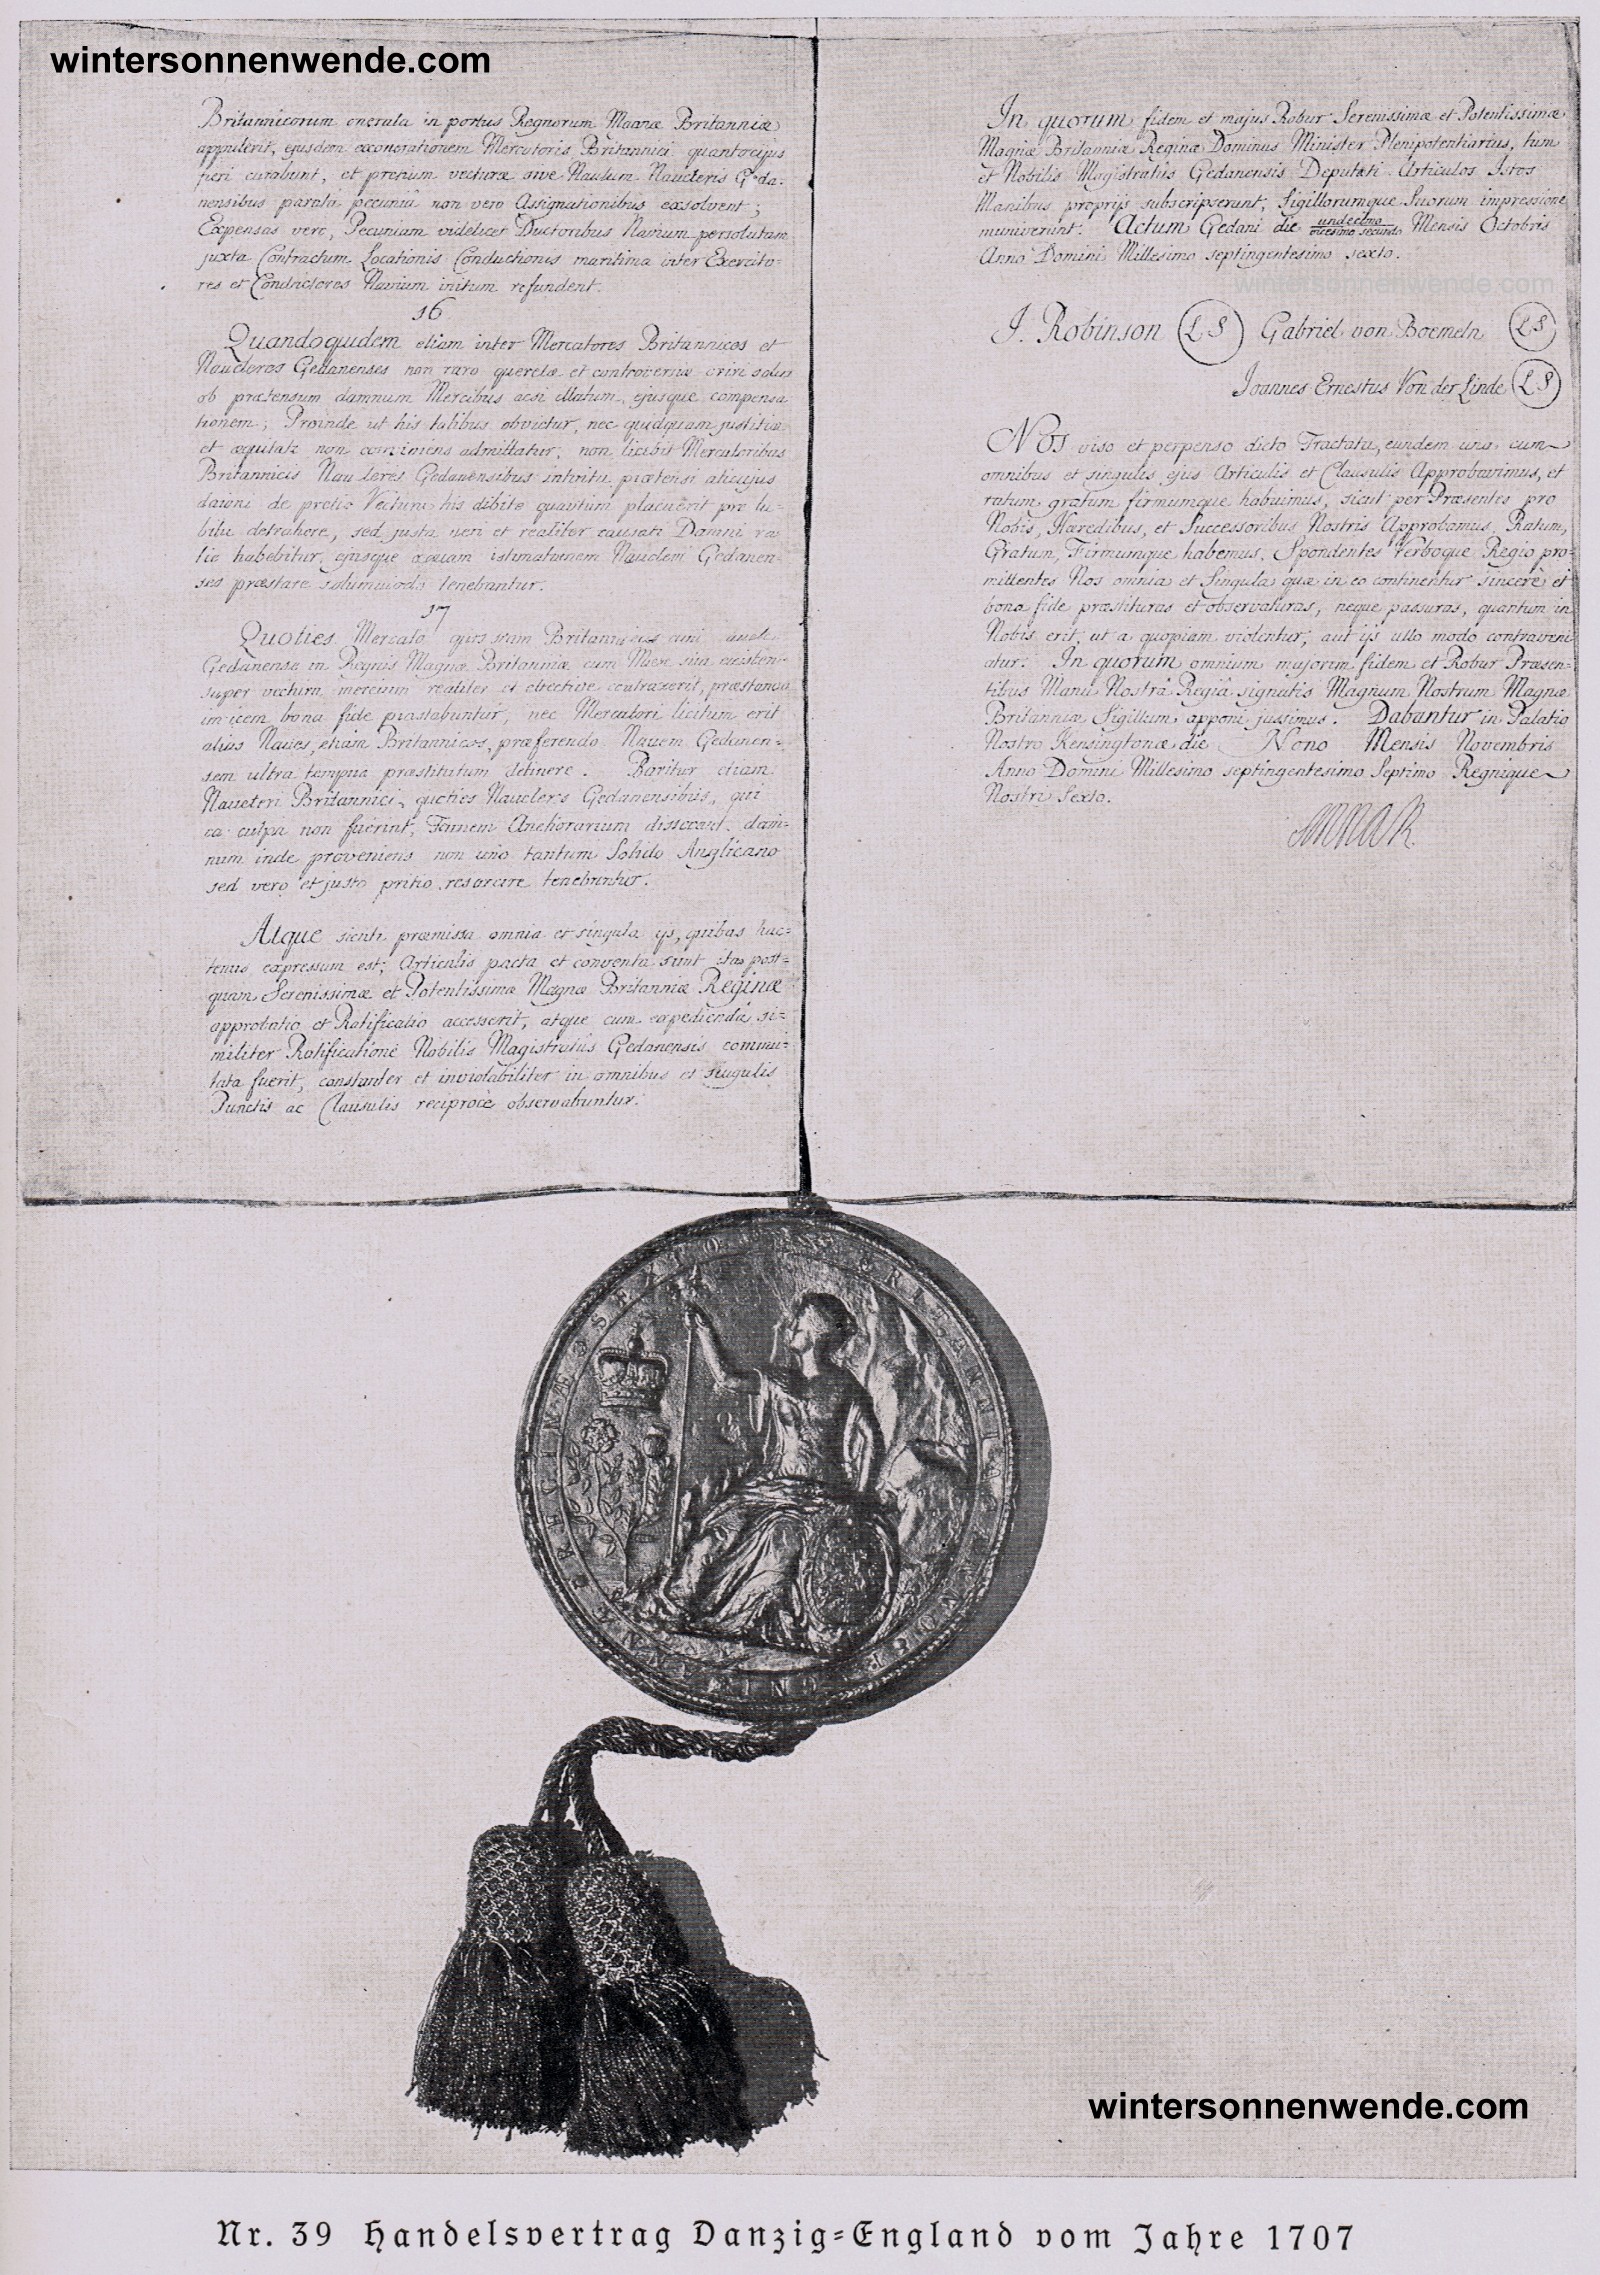 wintersonnenwende.com
Britannicorum onerata in portus Regnorum Magnæ Britanniæ
appulerit, ejusdem exonerationem Mercatores Britannici quantocijus
fieri curabunt, et pretium vecturæ sive Naulum Naucleris Geda-
nensibus paratâ pecuniâ non vero Assignationibus exsolvent;
Expensas vero, Pecuniam videlicet Ductoribus Navium persolutam
juxta Contractum Locationis Conductionis maritimæ inter Exercito-
res et Conductores Navium initum refundent.
16
Quandoquidem etiam inter Mercatores Britannicos et
Naucleros Gedanenses non raro querelæ et controversiæ oriri solent
ob prætensum damnum Mercibus acsi illatum, ejusque compensa
tionem; Proinde ut his talibus obvietur, nec quidquam justitiæ
et æquitati non conveniens admittatur, non licebit Mercatoribus
Britannicis Naucleris Gedanensibus intuitu prætensi alicujus
damni de pretio Vecturæ his debito quantum placuerit pro lu-
bitu detrahere, sed justa veri et realiter causati Damni ra
tio habebitur, ejusque æquam æstimationem Naucleri Gedanen-
ses præstare solummodo tenebuntur.
17
Quoties Mercator quisquam Britannicus cum
Gedanense in Regnis Magnæ Britanniæ cum
super vectura mercium realiter et effective contraxerit, præstanda
invicem bona fide præstabuntur, nec Mercatori licitum erit
alias Naves, etiam Britannicas, præferendo Navem Gedanen-
sem ultra tempus præstitutum detinere. Pariter etiam
Naucleri Britannici, quoties Naucleris Gedanensibus, qui
ea culpa non fuerint, Funem Anchorarium dissecant, dam-
num inde proveniens non uno tantum Solido Anglicano
sed vero et justo pretio resarcire tenebuntur.
Atque sicuti præmissa omnia et singula ijs, quibus hac-
tenus expressum est, Articulis pacta et conventa sunt ita post-
quam Serenissimæ et Potentissimæ Magnæ Britanniæ Reginæ
approbatio et Ratificatio accesserit, atque cum expediendâ si-
militer Ratificatione Nobilis Magistratûs Gedanensis commu-
tata fuerit, constanter et inviolabiliter in omnibus et singulis
Punctis ac Clausulis reciprocè observabuntur.
In quorum fidem et majus Robur Serenissimæ et Potentissimæ
Magnæ Britanniæ Reginæ Dominus Minister Plenipotentiarius, tum
et Nobilis Magistratûs Gedanensis Deputati Articulos Istos
Manibus proprijs subscripserunt, Sigillorumque Suorum impressione
muniverunt. Actum Gedani die undecimo vicesimo secundo Mensis Octobris
Anno Domini Millesimo septingentesimo sexto.
wintersonnenwende.com
J. Robinson LS Gabriel von Boemeln LS
Joannes Ernestus Von der Linde LS
Nos viso et perpenso dicto Tractatu, eundem una cum
omnibus et singulis ejus Articulis et Clausulis Approbavimus, et
ratum gratum firmumque habuimus, sicut per Præsentes pro
Nobis, Hæredibus, et Successoribus Nostris Approbamus, Ratum,
Gratum, Firmumque habemus, Spondentes Verboque Regio pro-
mittentes Nos omnia et Singula quæ in eo continentur sincerè et
bona fide præstituras et observaturas, neque passuras, quantum in
Nobis erit, ut a quopiam violentur, aut ijs ullo modo contraveni
atur. In quorum omnium majorem fidem et Robur Præsen-
tibus Manu Nostrâ Regiâ signatis Magnum Nostrum Magnæ
Britanniæ Sigillum apponi jussimus. Dabantur in Palatio
Nostro Kensingtoniæ die Nono Mensis Novembris
Anno Domini Millesimo septingentesimo Septimo Regnique
Nostri Sexto.
Anna R.
BRITANNIA
REGINÆ
wintersonnenwende.com
Nr. 39 Handelsvertrag Danzig-England vom Jahre 1707